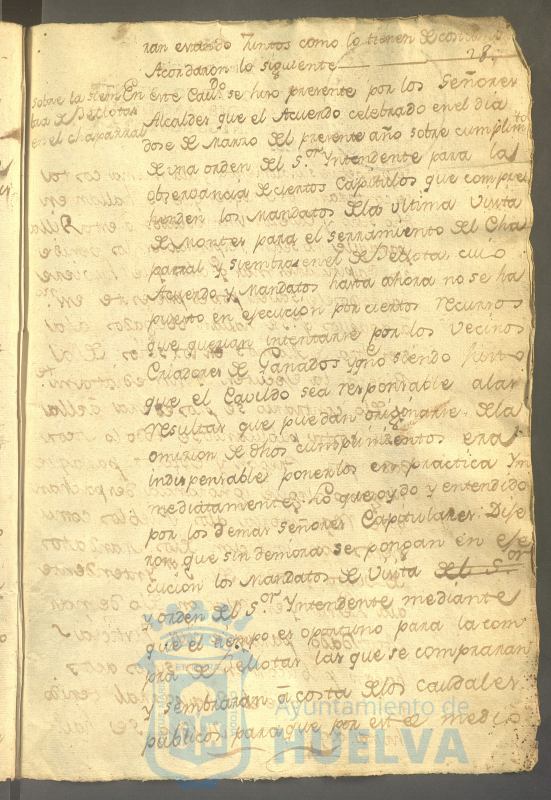 ran estando Juntos como lo tienen de costumbre
28
Acordaron lo siguiente
sobre la siem
bra de Vellotas
en el chaparral
En este Cavdo se hizo presente por los Señores
Alcaldes que el Acuerdo celebrado en el dia
dose de Marzo del presente año sobre cumplimto
de una orden del Sor Yntendente para la
observancia de ciertos Capitulos que compre
henden los Mandatos dela ultima Visita
de Montes para el serramiento del Cha
parral y siembra en el de Vellota, cuio
Acuerdo y Mandatos hasta ahora no se ha
puesto en ejecucion por ciertos recursos
que querian intentarse por los vecinos
Criadores de Ganados y no siendo Justo
que el Cavildo sea responsable alas
resultas que puedan originarse dela
omision de dhos cumplimientos era
indispensable ponerlos en practica Yn
mediatamente: Lo que oydo y entendido
por los demas Señores Capitulares: Dije
ron que sin demora se pongan en eje
cucion los Mandatos de Visita del Sor
y orden del Sor Yntendente mediante
que el tiempo es oportuno para la com
pra de Vellotas las que se compraran
y sembraran a costa delos caudales
publicos para que por este medio
Ayuntamiento de
HUELVA